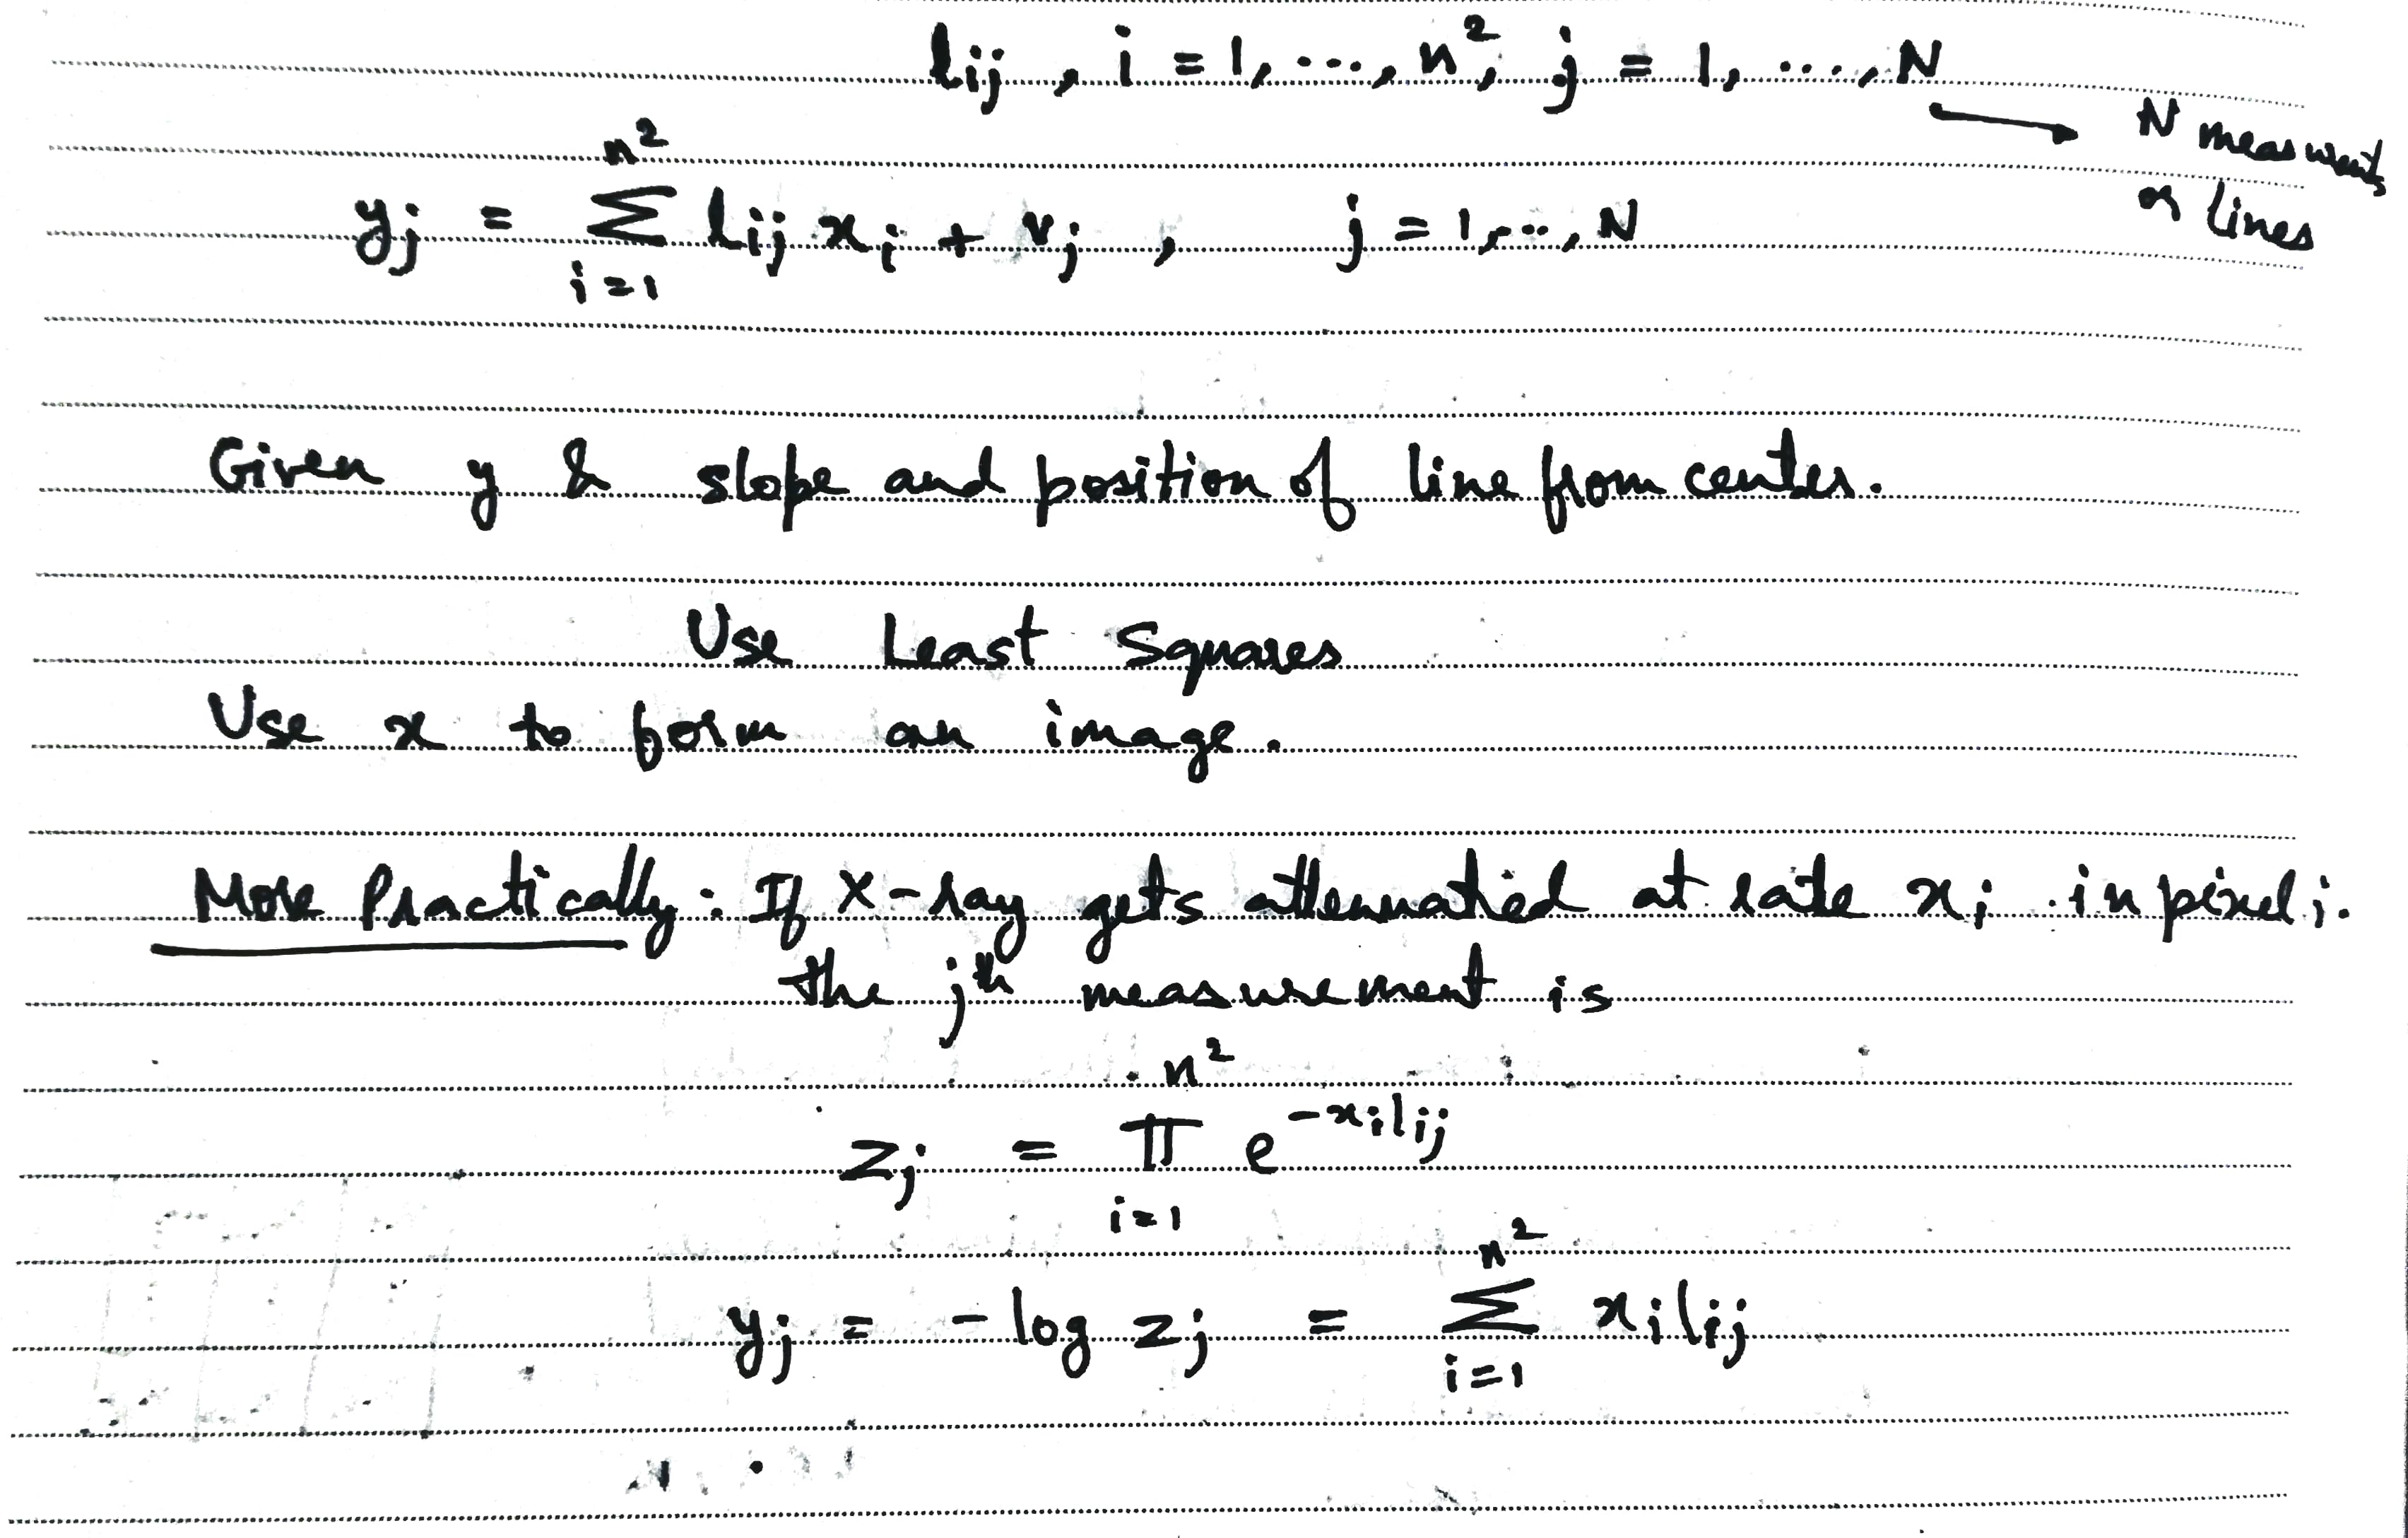 lij , i = 1, ..., n², j = 1, ...., N → N measurments
or lines
yj = Σ_{i=1}^{n²} lij xi + vj , j = 1, .., N
Given y & slope and position of line from center.
Use Least Squares
Use x to form an image.
More Practically : If X-ray gets attenuated at rate xi in pixel i.
the jth measurement is
zj = Π_{i=1}^{n²} e^{-xi lij}
yj = - log zj = Σ_{i=1}^{n²} xi lij